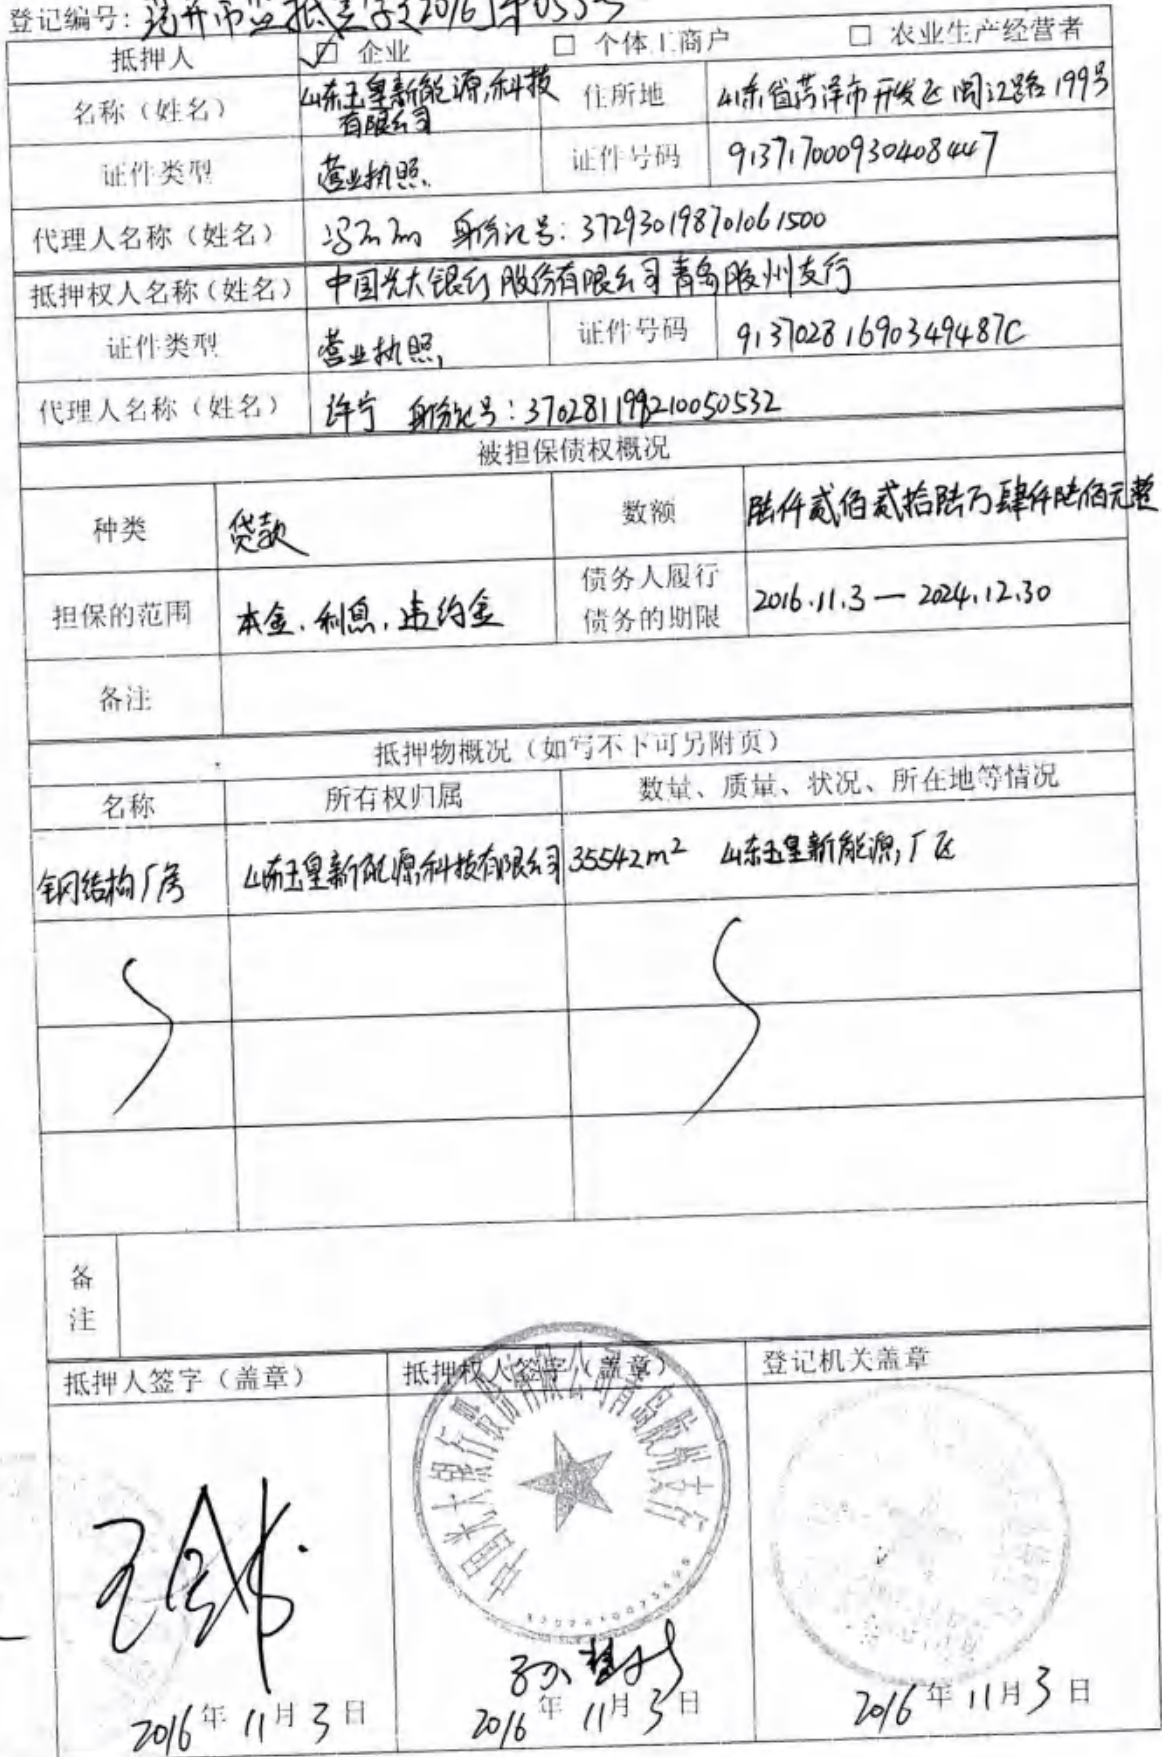 登记编号：菏开市监抵登字〔2016〕第055号
抵押人 ☑ 企业 □ 个体工商户 □ 农业生产经营者
名称（姓名） 山东玉皇新能源科技有限公司 住所地 山东省菏泽市开发区闽江路199号
证件类型 营业执照 证件号码 913717000930408447
代理人名称（姓名） 身份证号：372930198701061500
抵押权人名称（姓名） 中国光大银行股份有限公司青岛胶州支行
证件类型 营业执照 证件号码 91370281690349487C
代理人名称（姓名） 许宁 身份证号：370281199210050532
被担保债权概况
种类 贷款 数额 陆仟贰佰贰拾陆万肆仟陆佰元整
担保的范围 本金、利息、违约金 债务人履行债务的期限 2016.11.3—2024.12.30
备注
抵押物概况（如写不下可另附页）
名称 所有权归属 数量、质量、状况、所在地等情况
钢结构厂房 山东玉皇新能源科技有限公司 35542m² 山东玉皇新能源厂区
备注
抵押人签字（盖章） 抵押权人签字（盖章） 登记机关盖章
中国光大银行股份有限公司青岛胶州支行
2016年11月3日 2016年11月3日 2016年11月3日